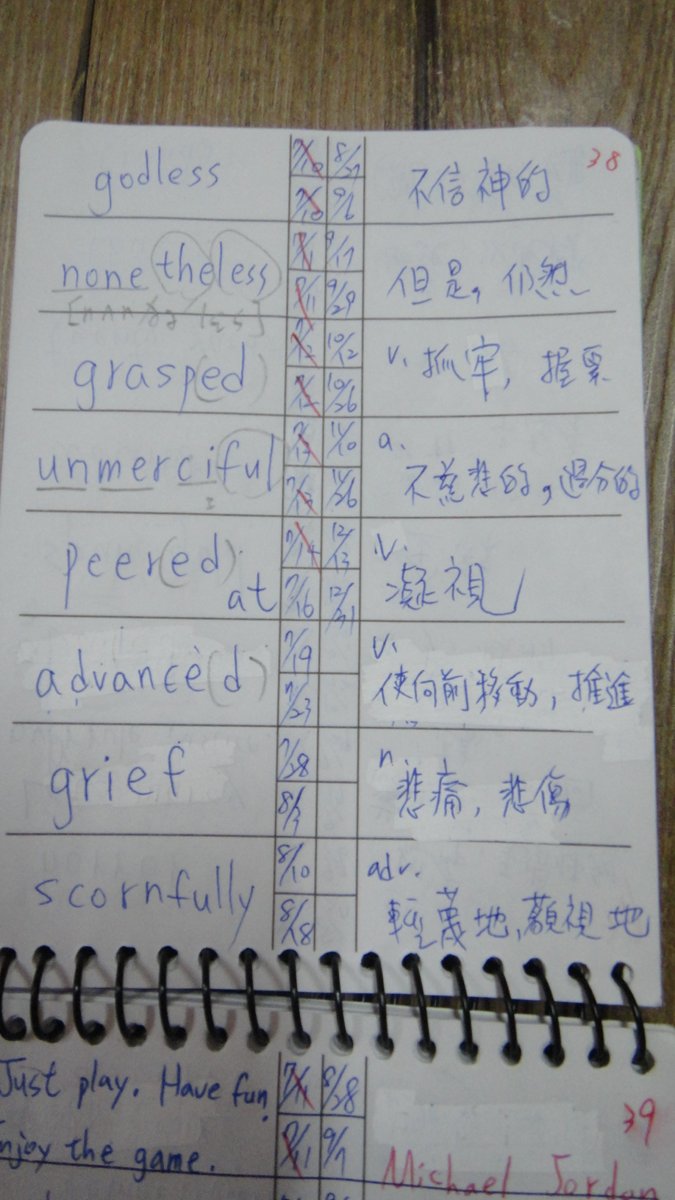 38
godless 7/10 8/27 不信神的
7/10 9/6
nonetheless 7/11 9/17 但是,仍然
7/11 9/29
grasp(ed) 7/12 10/12 v. 抓牢,握緊
7/12 10/26
unmerciful 7/13 11/10 a.
7/13 11/26 不慈悲的,過分的
peer(ed) 7/14 12/13 v.
at 7/16 12/31 凝視
advance(d) 7/19 v.
7/23 使向前移動,推進
grief 7/28 n.
8/3 悲痛,悲傷
scornfully 8/10 adv.
8/18 輕蔑地,藐視地
Just play. Have fun. 7/11 8/28
39
Enjoy the game. 7/11 9/7
Michael Jordan